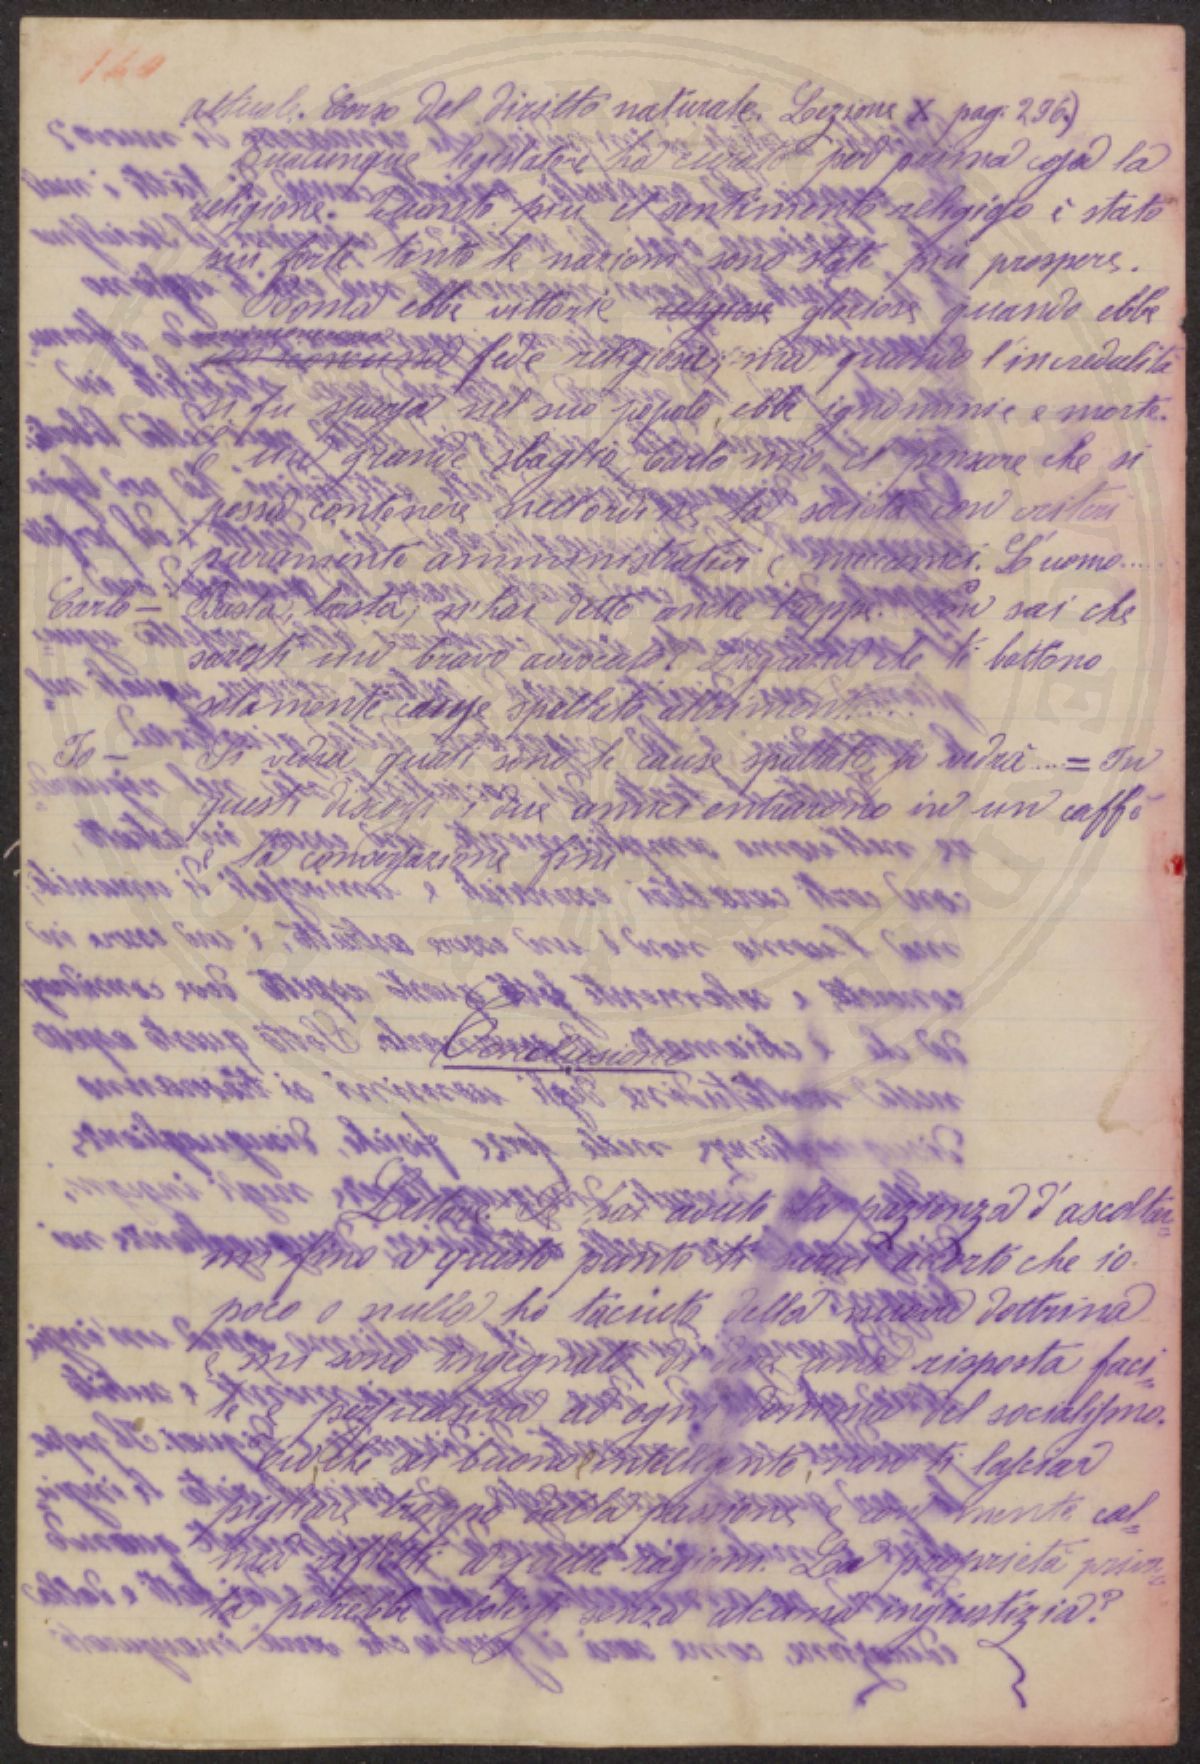 140
attuale. Corso del diritto naturale. Lezione X pag. 296.)
Qualunque legislatore ha curato per prima cosa la
religione. Quanto più il sentimento religioso è stato
più forte tanto le nazioni sono state più prospere.
Roma ebbe vittorie religiose gloriose quando ebbe
fede religiosa; ma quando l'incredulità
si fu sparsa nel suo popolo, ebbe ignominie e morte.
È un grande sbaglio, Carlo mio, il pensare che si
possa contenere nell'ordine la società con criteri
puramente amministrativi e meccanici. L'uomo.....
Carlo — Basta, basta, hai detto anche troppo. sai che
saresti un bravo avvocato? Disgrazia che ti battono
solamente cause spallate altrimenti....
Io — Si vedrà quali sono le cause spallate, si vedrà.... = In
questi discorsi i due amici entrarono in un caffè
e la conversazione finì
Conclusione
Lettore se hai avuto la pazienza d'ascoltar=
mi fino a questo punto ti sarai accorto che io
poco o nulla ho taciuto della nuova dottrina
e mi sono ingegnato di dare una risposta faci=
le e persuasiva ad ogni domma del socialismo.
che sei buono e intelligente, non ti lasciar
pigliare troppo dalla passione e con mente cal=
ma rifletti a queste ragioni. La proprietà priva=
ta potrebbe abolirsi senza alcuna ingiustizia?